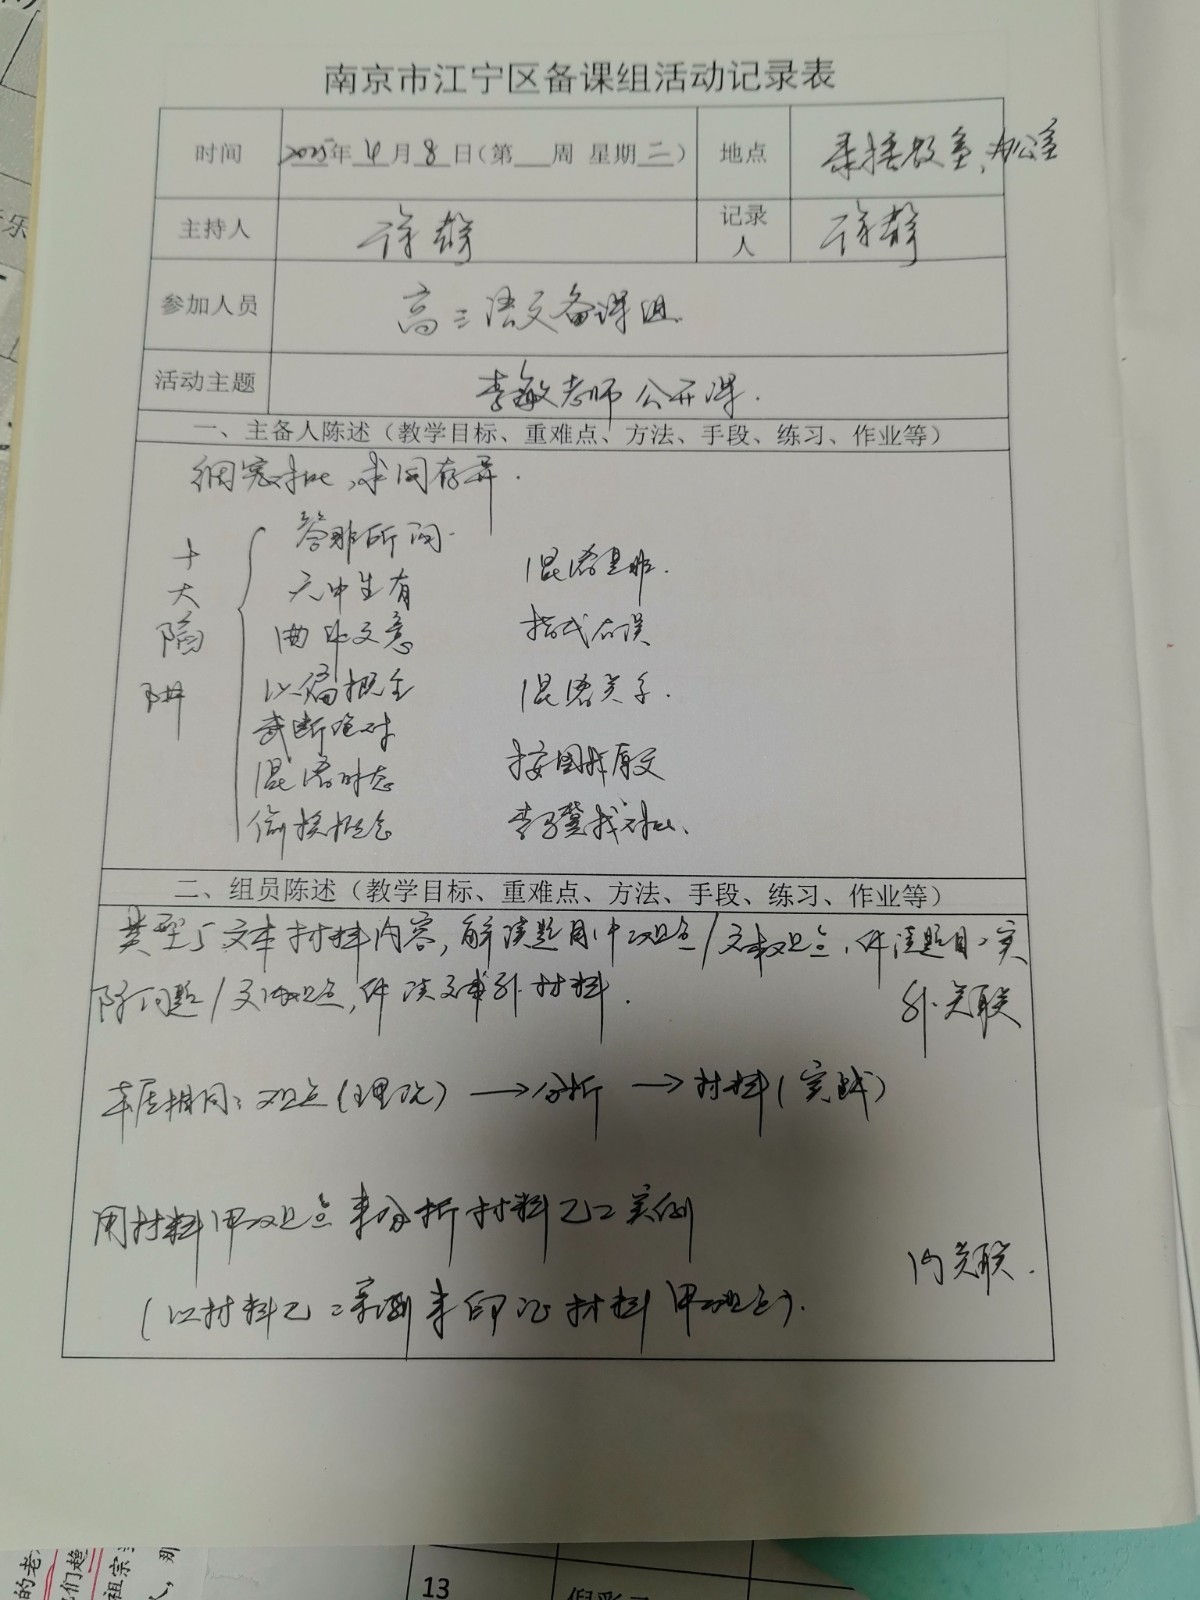 南京市江宁区备课组活动记录表
时间 2025年 4 月 8 日（第 周 星期 二） 地点 录播教室、办公室
主持人 徐静 记录人 徐静
参加人员 高三语文备课组
活动主题 李敏老师公开课.
一、主备人陈述（教学目标、重难点、方法、手段、练习、作业等）
细察对比,求同存异.
十大陷阱
答非所问.
无中生有 混淆是非.
曲解文意 指代有误
以偏概全 混淆关系.
武断绝对
混淆时态 按图找原文
偷换概念 找对比.
二、组员陈述（教学目标、重难点、方法、手段、练习、作业等）
类型 文本材料内容,解读题目中观点/文本观点,解读题目 实
际问题/文本观点,解读文本外材料. 外关联
本质相同: 观点(理论) → 分析 → 材料(实践)
用材料甲观点来分析材料乙 实例
内关联.
(以材料乙 来印证材料甲观点).
的老
们趋
祖宗
那
13